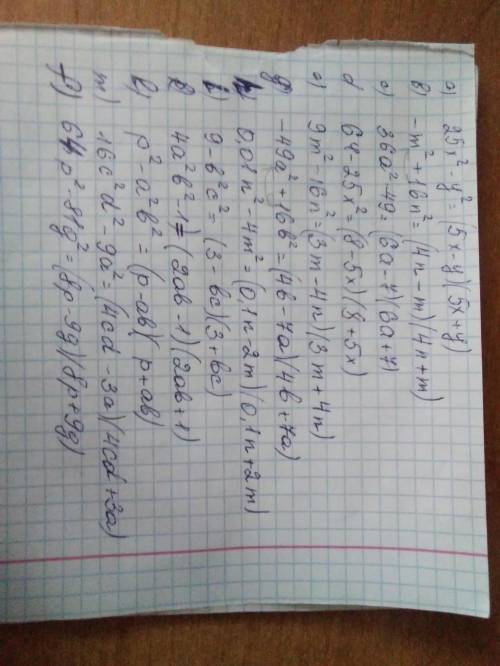 a) 25x² - y² = (5x - y)(5x + y)
b) - m² + 16n² = (4n - m)(4n + m)
c) 36a² - 49 = (6a - 7)(6a + 7)
d 64 - 25x² = (8 - 5x)(8 + 5x)
e) 9m² - 16n² = (3m - 4n)(3m + 4n)
g) -49a² + 16b² = (4b - 7a)(4b + 7a)
h) 0,01n² - 4m² = (0,1n - 2m)(0,1n + 2m)
i) 9 - b²c² = (3 - bc)(3 + bc)
k) 4a²b² - 1 = (2ab - 1)(2ab + 1)
l) p² - a²b² = (p - ab)(p + ab)
m) 16c²d² - 9a² = (4cd - 3a)(4cd + 3a)
f) 64p² - 81g² = (8p - 9g)(8p + 9g)